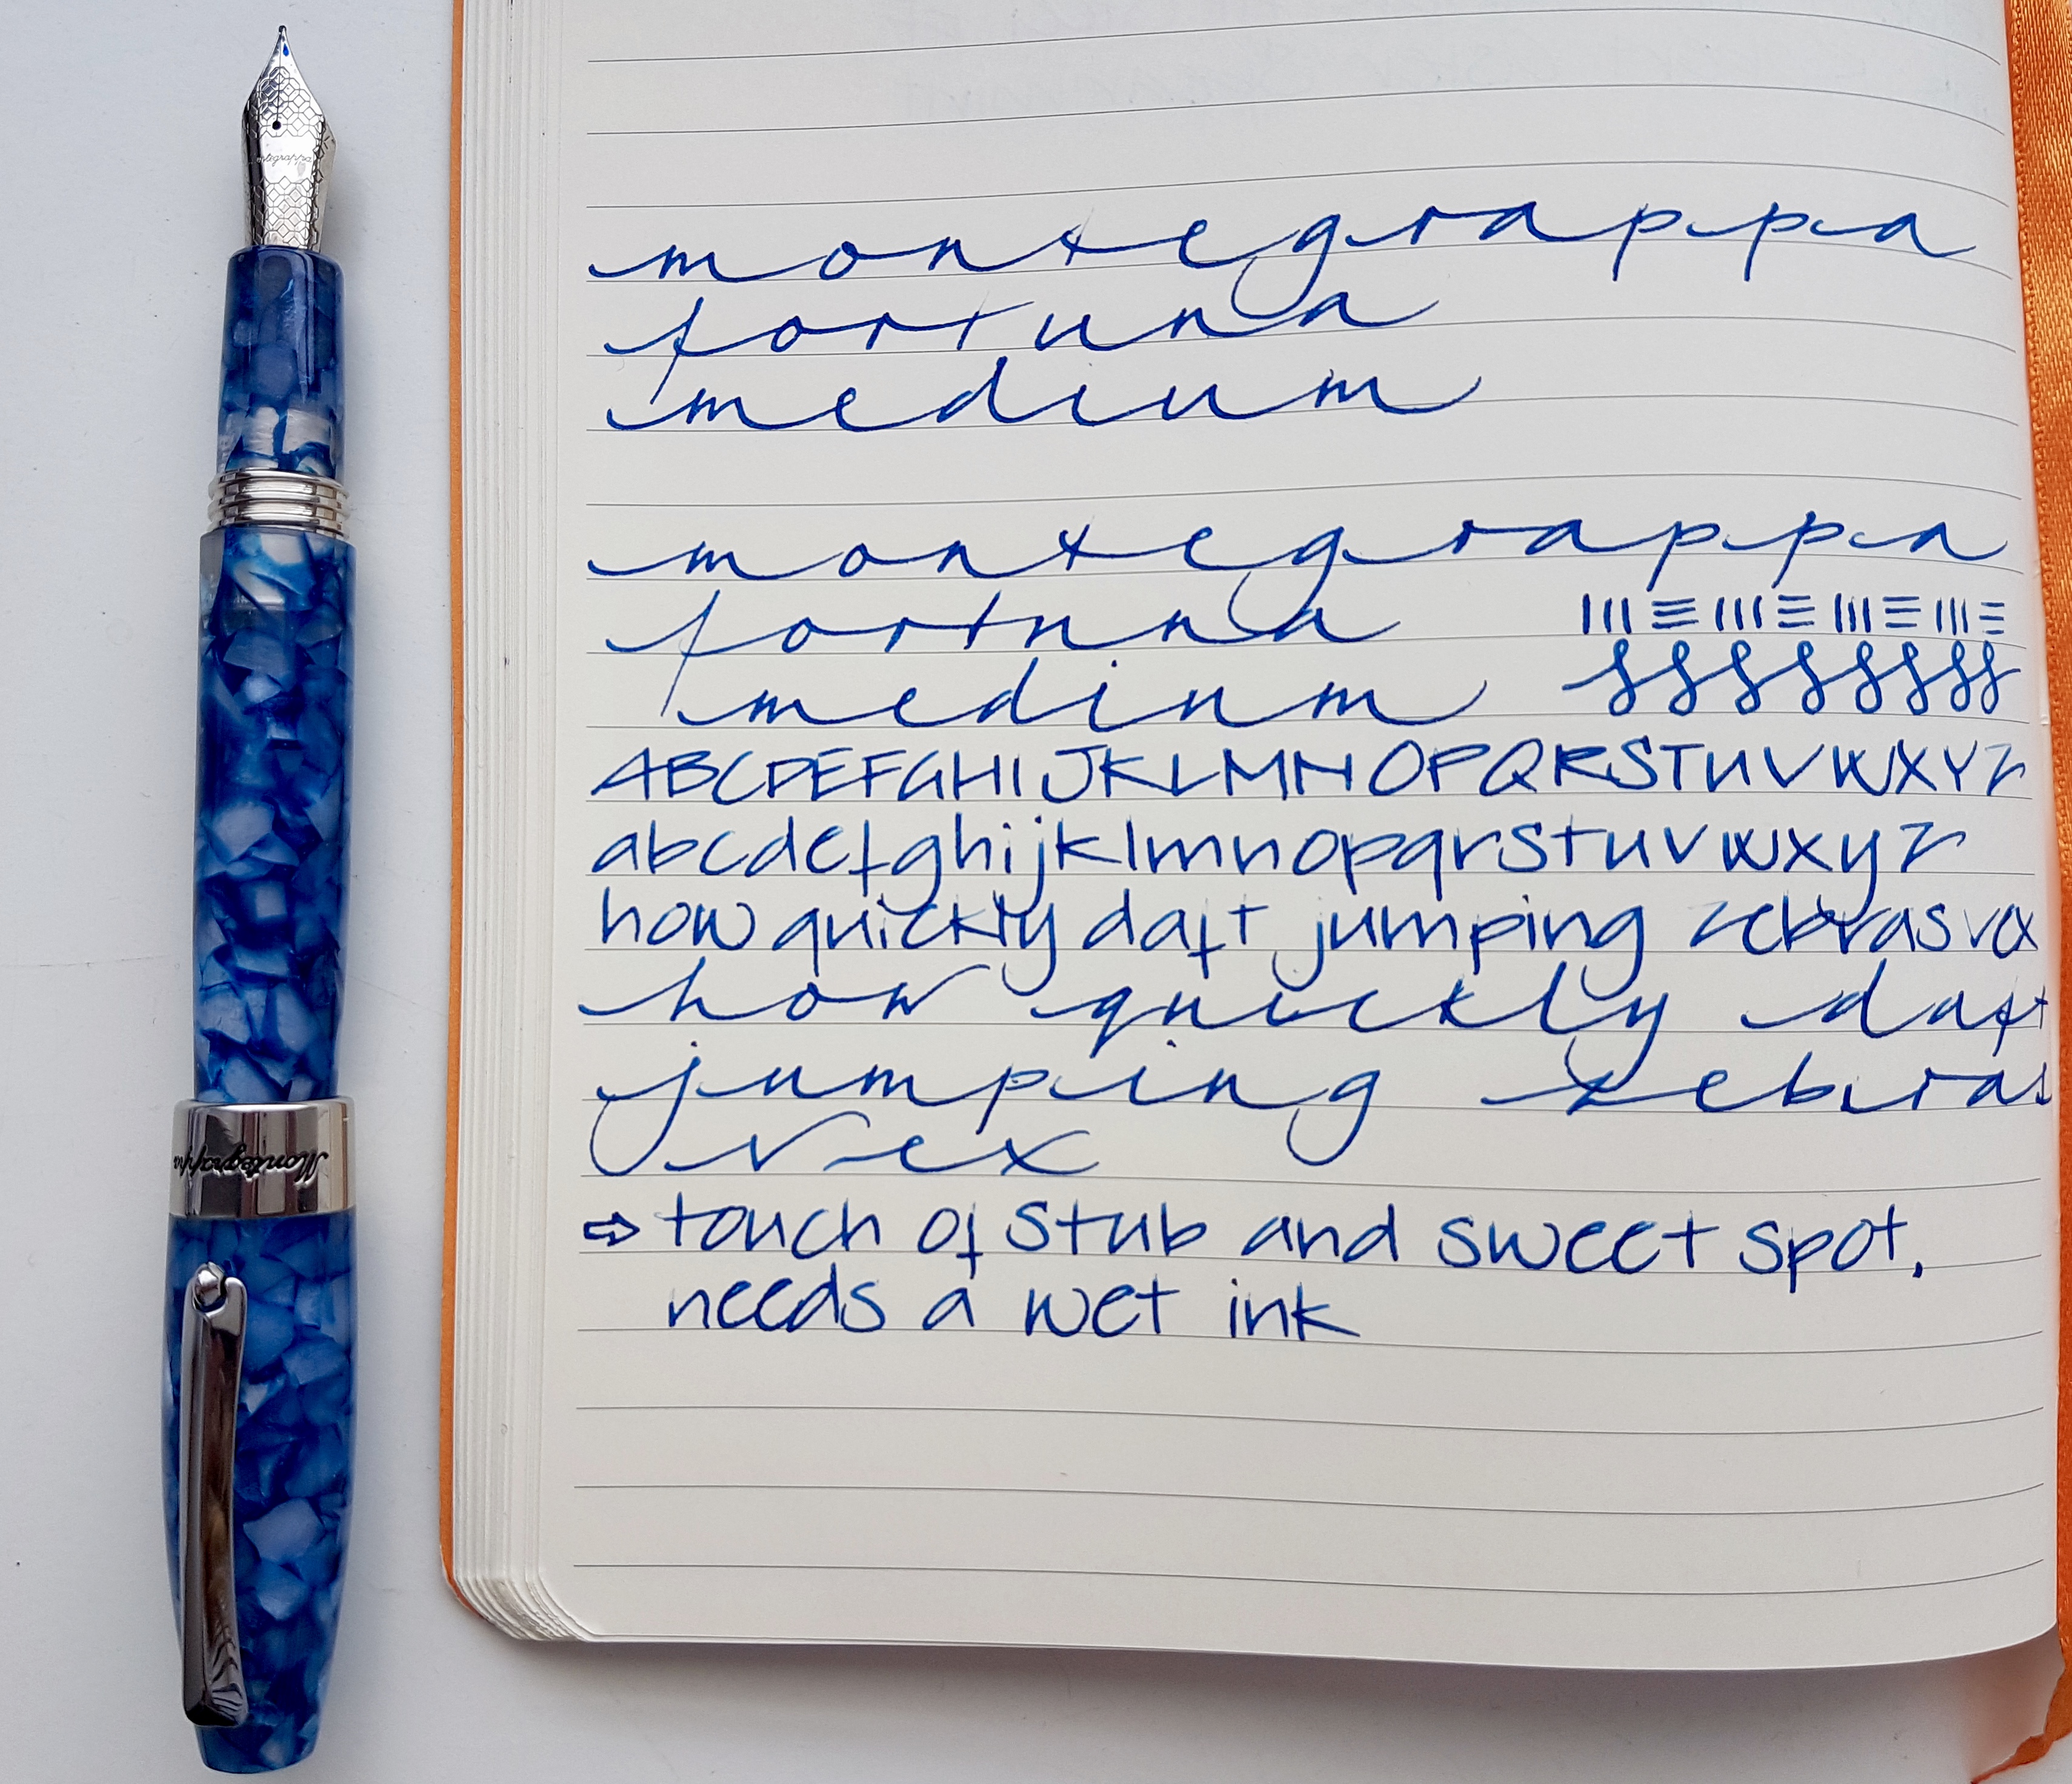 montegrappa
Montegrappa
montegrappa
fortuna
medium
montegrappa
fortuna
medium
ABCDEFGHIJKLMNOPQRSTUVWXYZ
abcdefghijklmnopqrstuvwxyz
how quickly daft jumping zebras vex
how quickly daft
jumping zebras
vex
⇨ touch of stub and sweet spot,
needs a wet ink